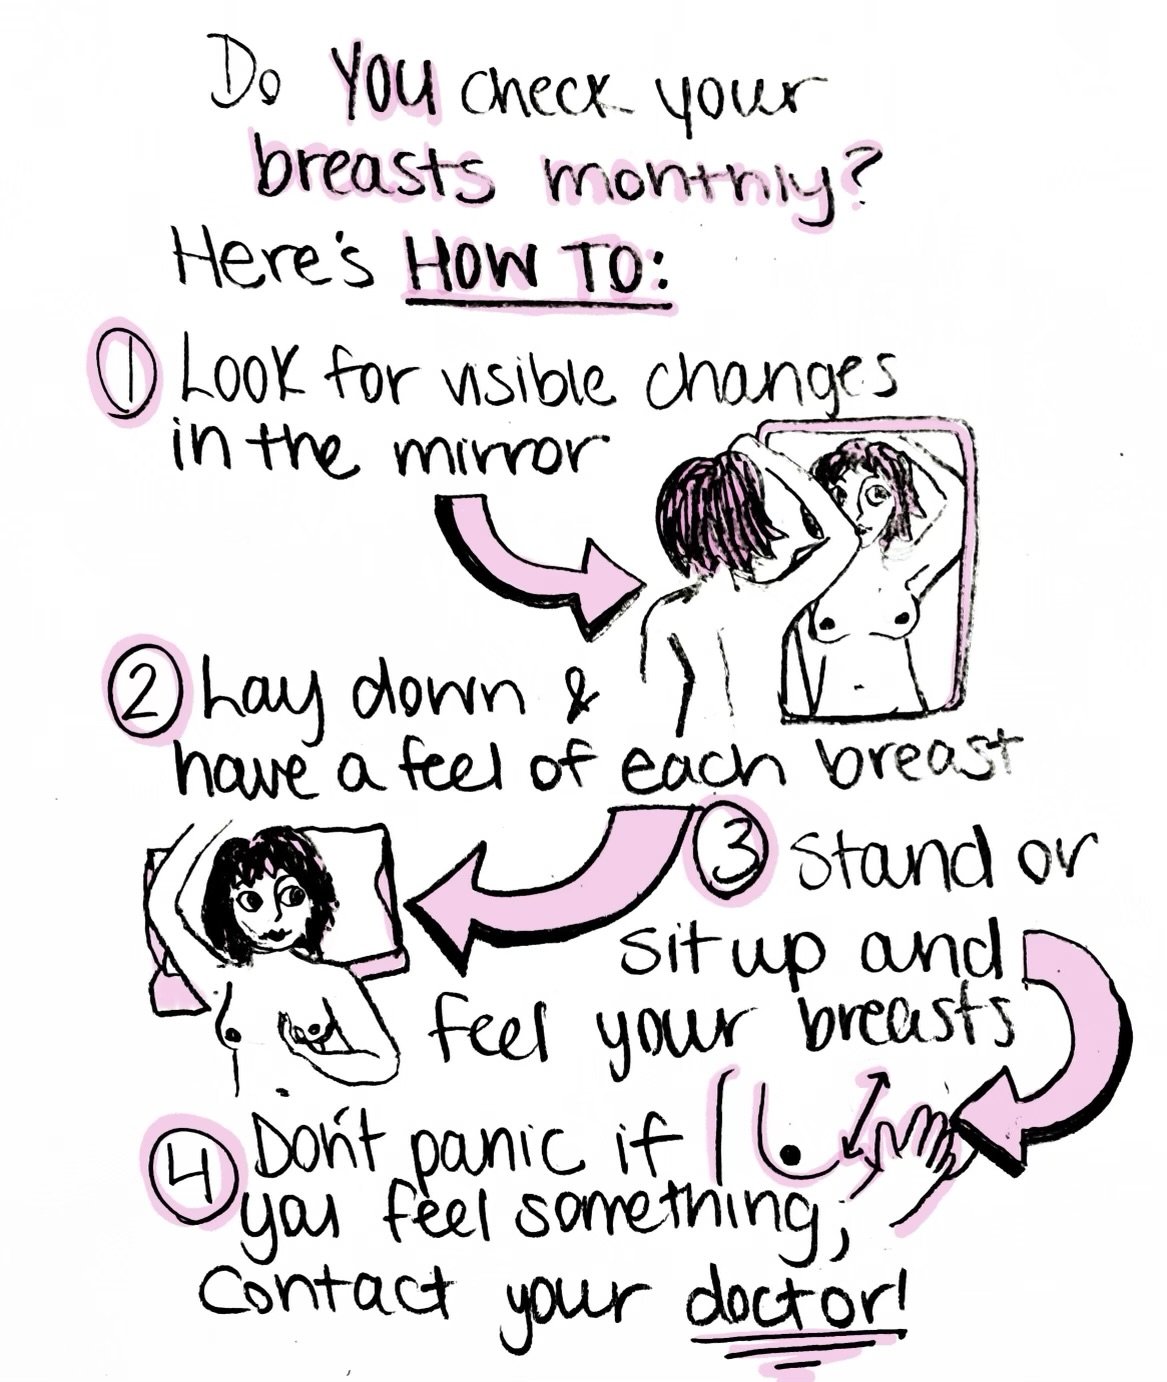 Do YOU check your
breasts monthly?
Here's HOW TO:
1 Look for visible changes
in the mirror
2 Lay down &
have a feel of each breast
3 Stand or
sit up and
feel your breasts
4 Don't panic if
you feel something;
Contact your doctor!